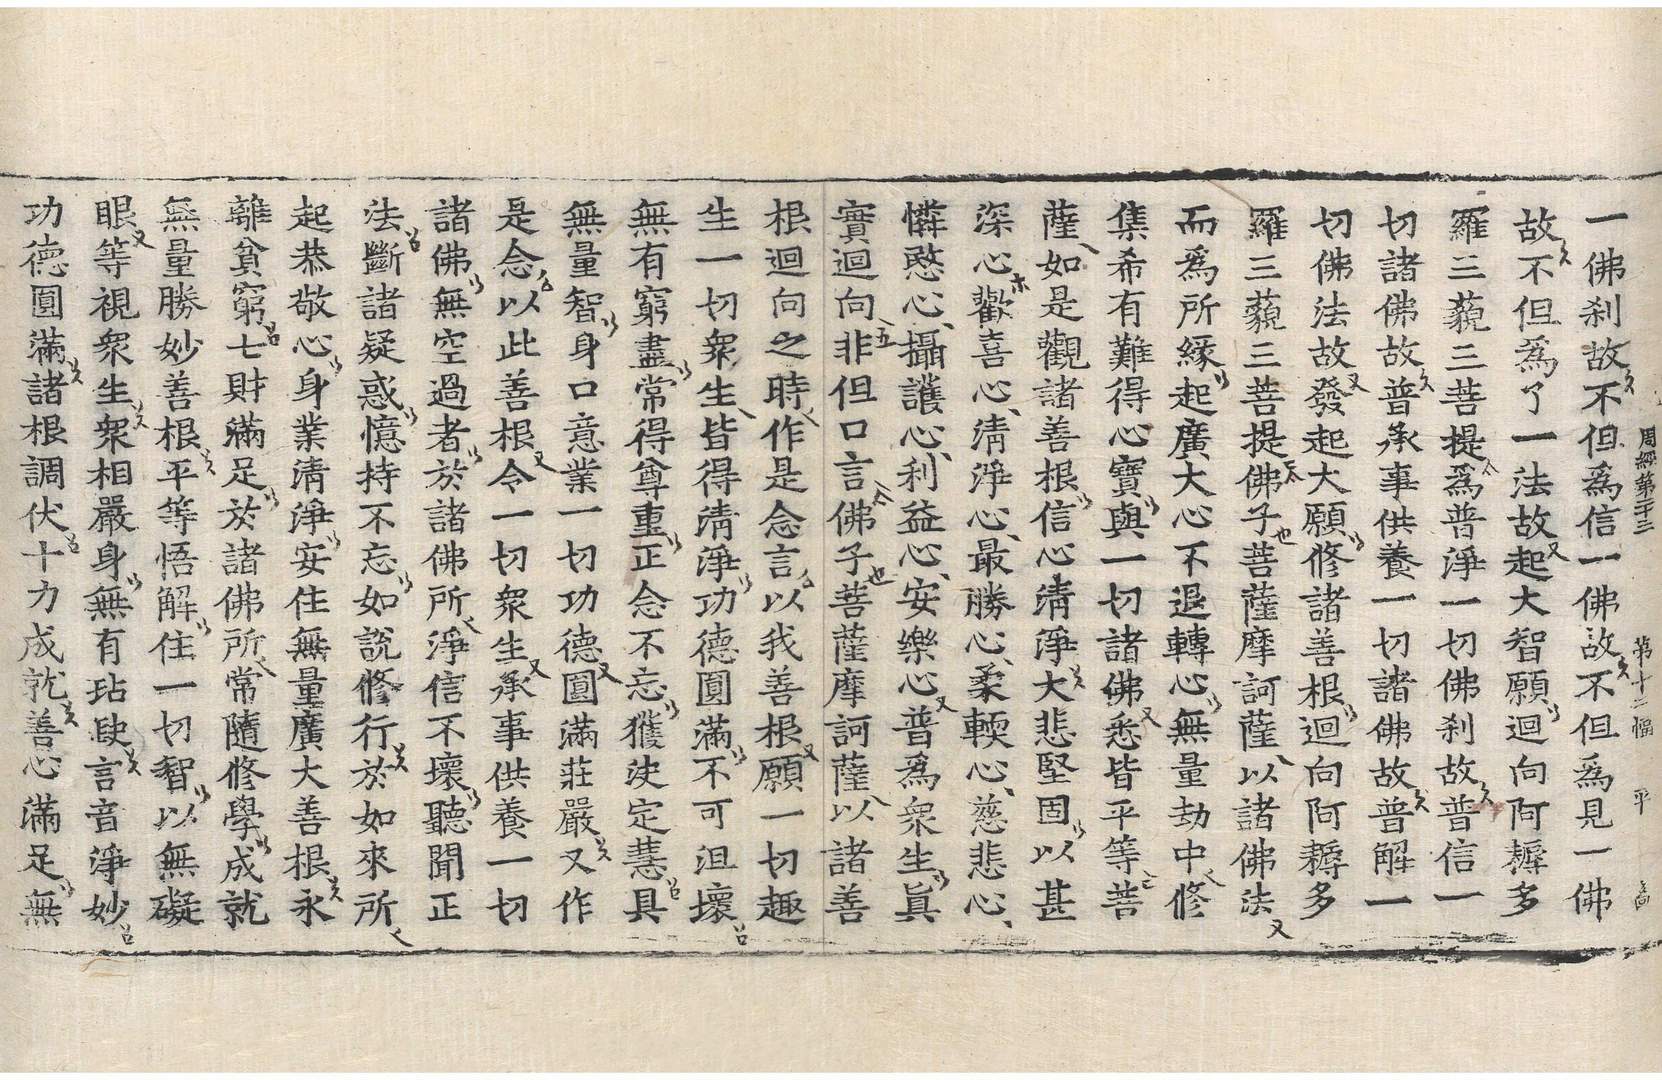 周經第二十三　第十二幅　平
一佛刹故不但爲信一佛故不但爲見一佛
故不但爲了一法故起大智願迴向阿耨多
羅三藐三菩提爲普淨一切佛刹故普信一
切諸佛故普承事供養一切諸佛故普解一
切佛法故發起大願修諸善根迴向阿耨多
羅三藐三菩提佛子菩薩摩訶薩以諸佛法
而爲所緣起廣大心不退轉心無量劫中修
集希有難得心寶與一切諸佛悉皆平等菩
薩如是觀諸善根信心清淨大悲堅固以甚
深心歡喜心、清淨心、最勝心、柔輭心、慈悲心、
憐愍心、攝護心、利益心、安樂心普爲衆生眞
實迴向非但口言佛子菩薩摩訶薩以諸善
根迴向之時作是念言以我善根願一切趣
生一切衆生皆得清淨功德圓滿不可沮壞
無有窮盡常得尊重正念不忘獲決定慧具
無量智身口意業一切功德圓滿莊嚴又作
是念以此善根令一切衆生承事供養一切
諸佛無空過者於諸佛所淨信不壞聽聞正
法斷諸疑惑憶持不忘如說修行於如來所
起恭敬心身業清淨安住無量廣大善根永
離貧窮七財滿足於諸佛所常隨修學成就
無量勝妙善根平等悟解住一切智以無礙
眼等視衆生衆相嚴身無有玷缺言音淨妙
功德圓滿諸根調伏十力成就善心滿足無